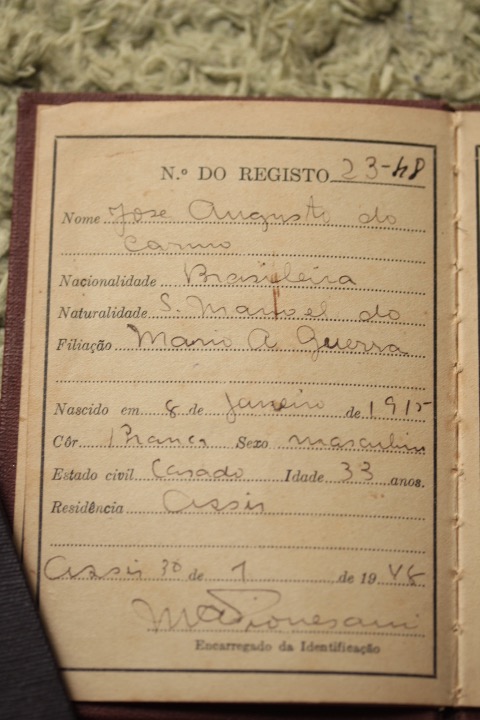 N.º DO REGISTO 23-48
Nome Jose Augusto do
Carmo
Nacionalidade Brasileira
Naturalidade S. Manoel do
Filiação Mario A Guerra
Nascido em 8 de Janeiro de 1915
Côr Branca Sexo masculino
Estado civil Casado Idade 33 anos.
Residência Assis
Assis 30 de 1 de 1948
Encarregado da Identificação